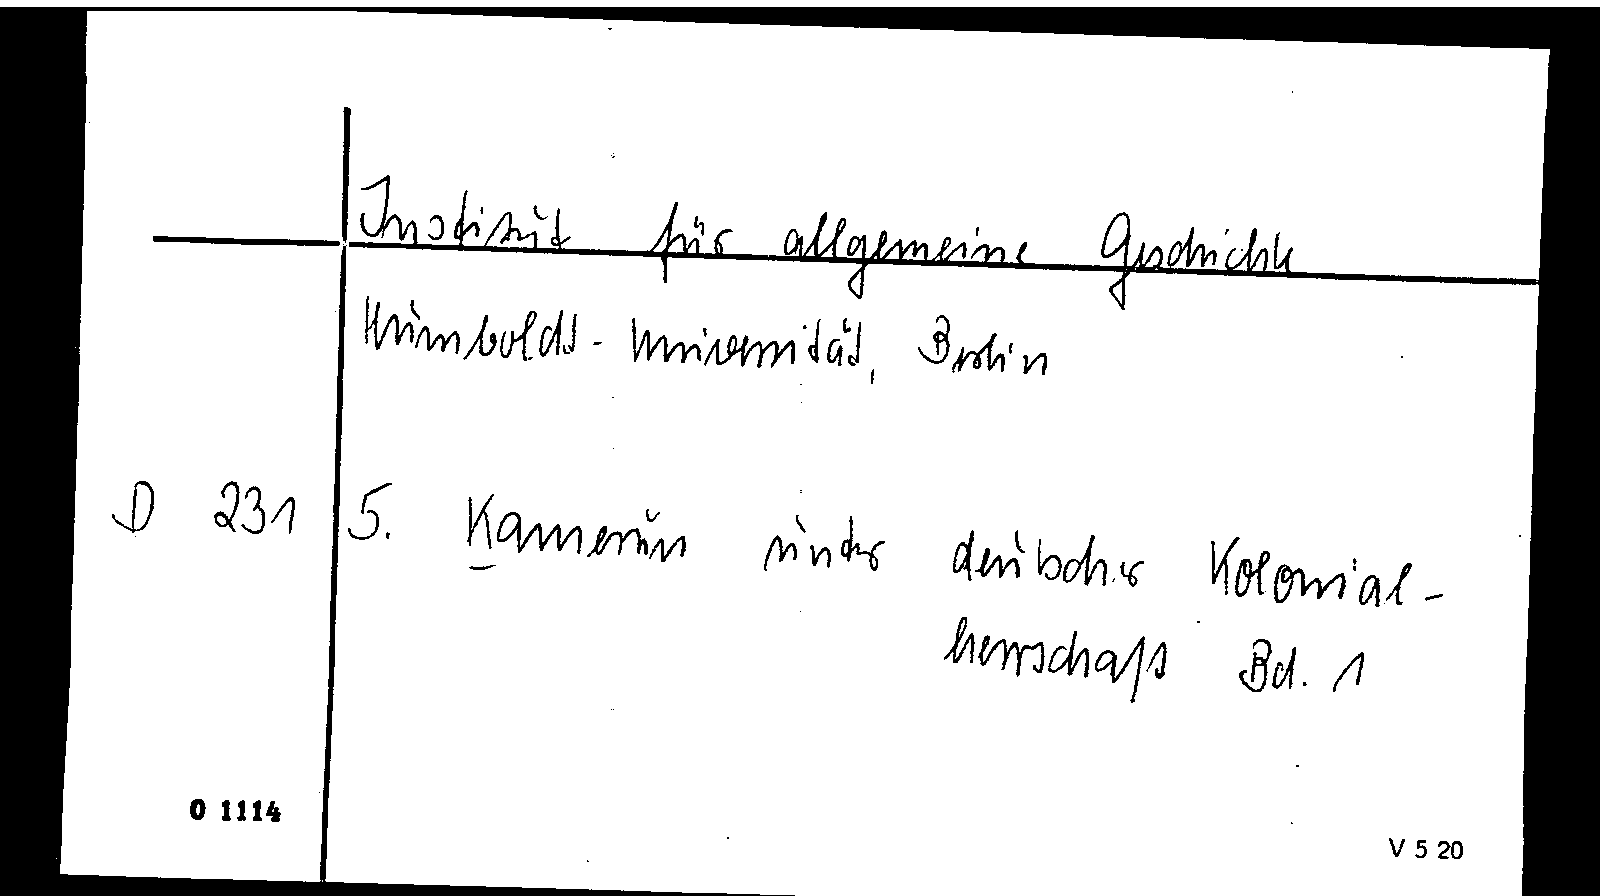 Institut für allgemeine Geschichte
Humboldt-Universität, Berlin
D 231 5. Kamerun unter deutscher Kolonial-
herrschaft Bd. 1
O 1114
V 5 20